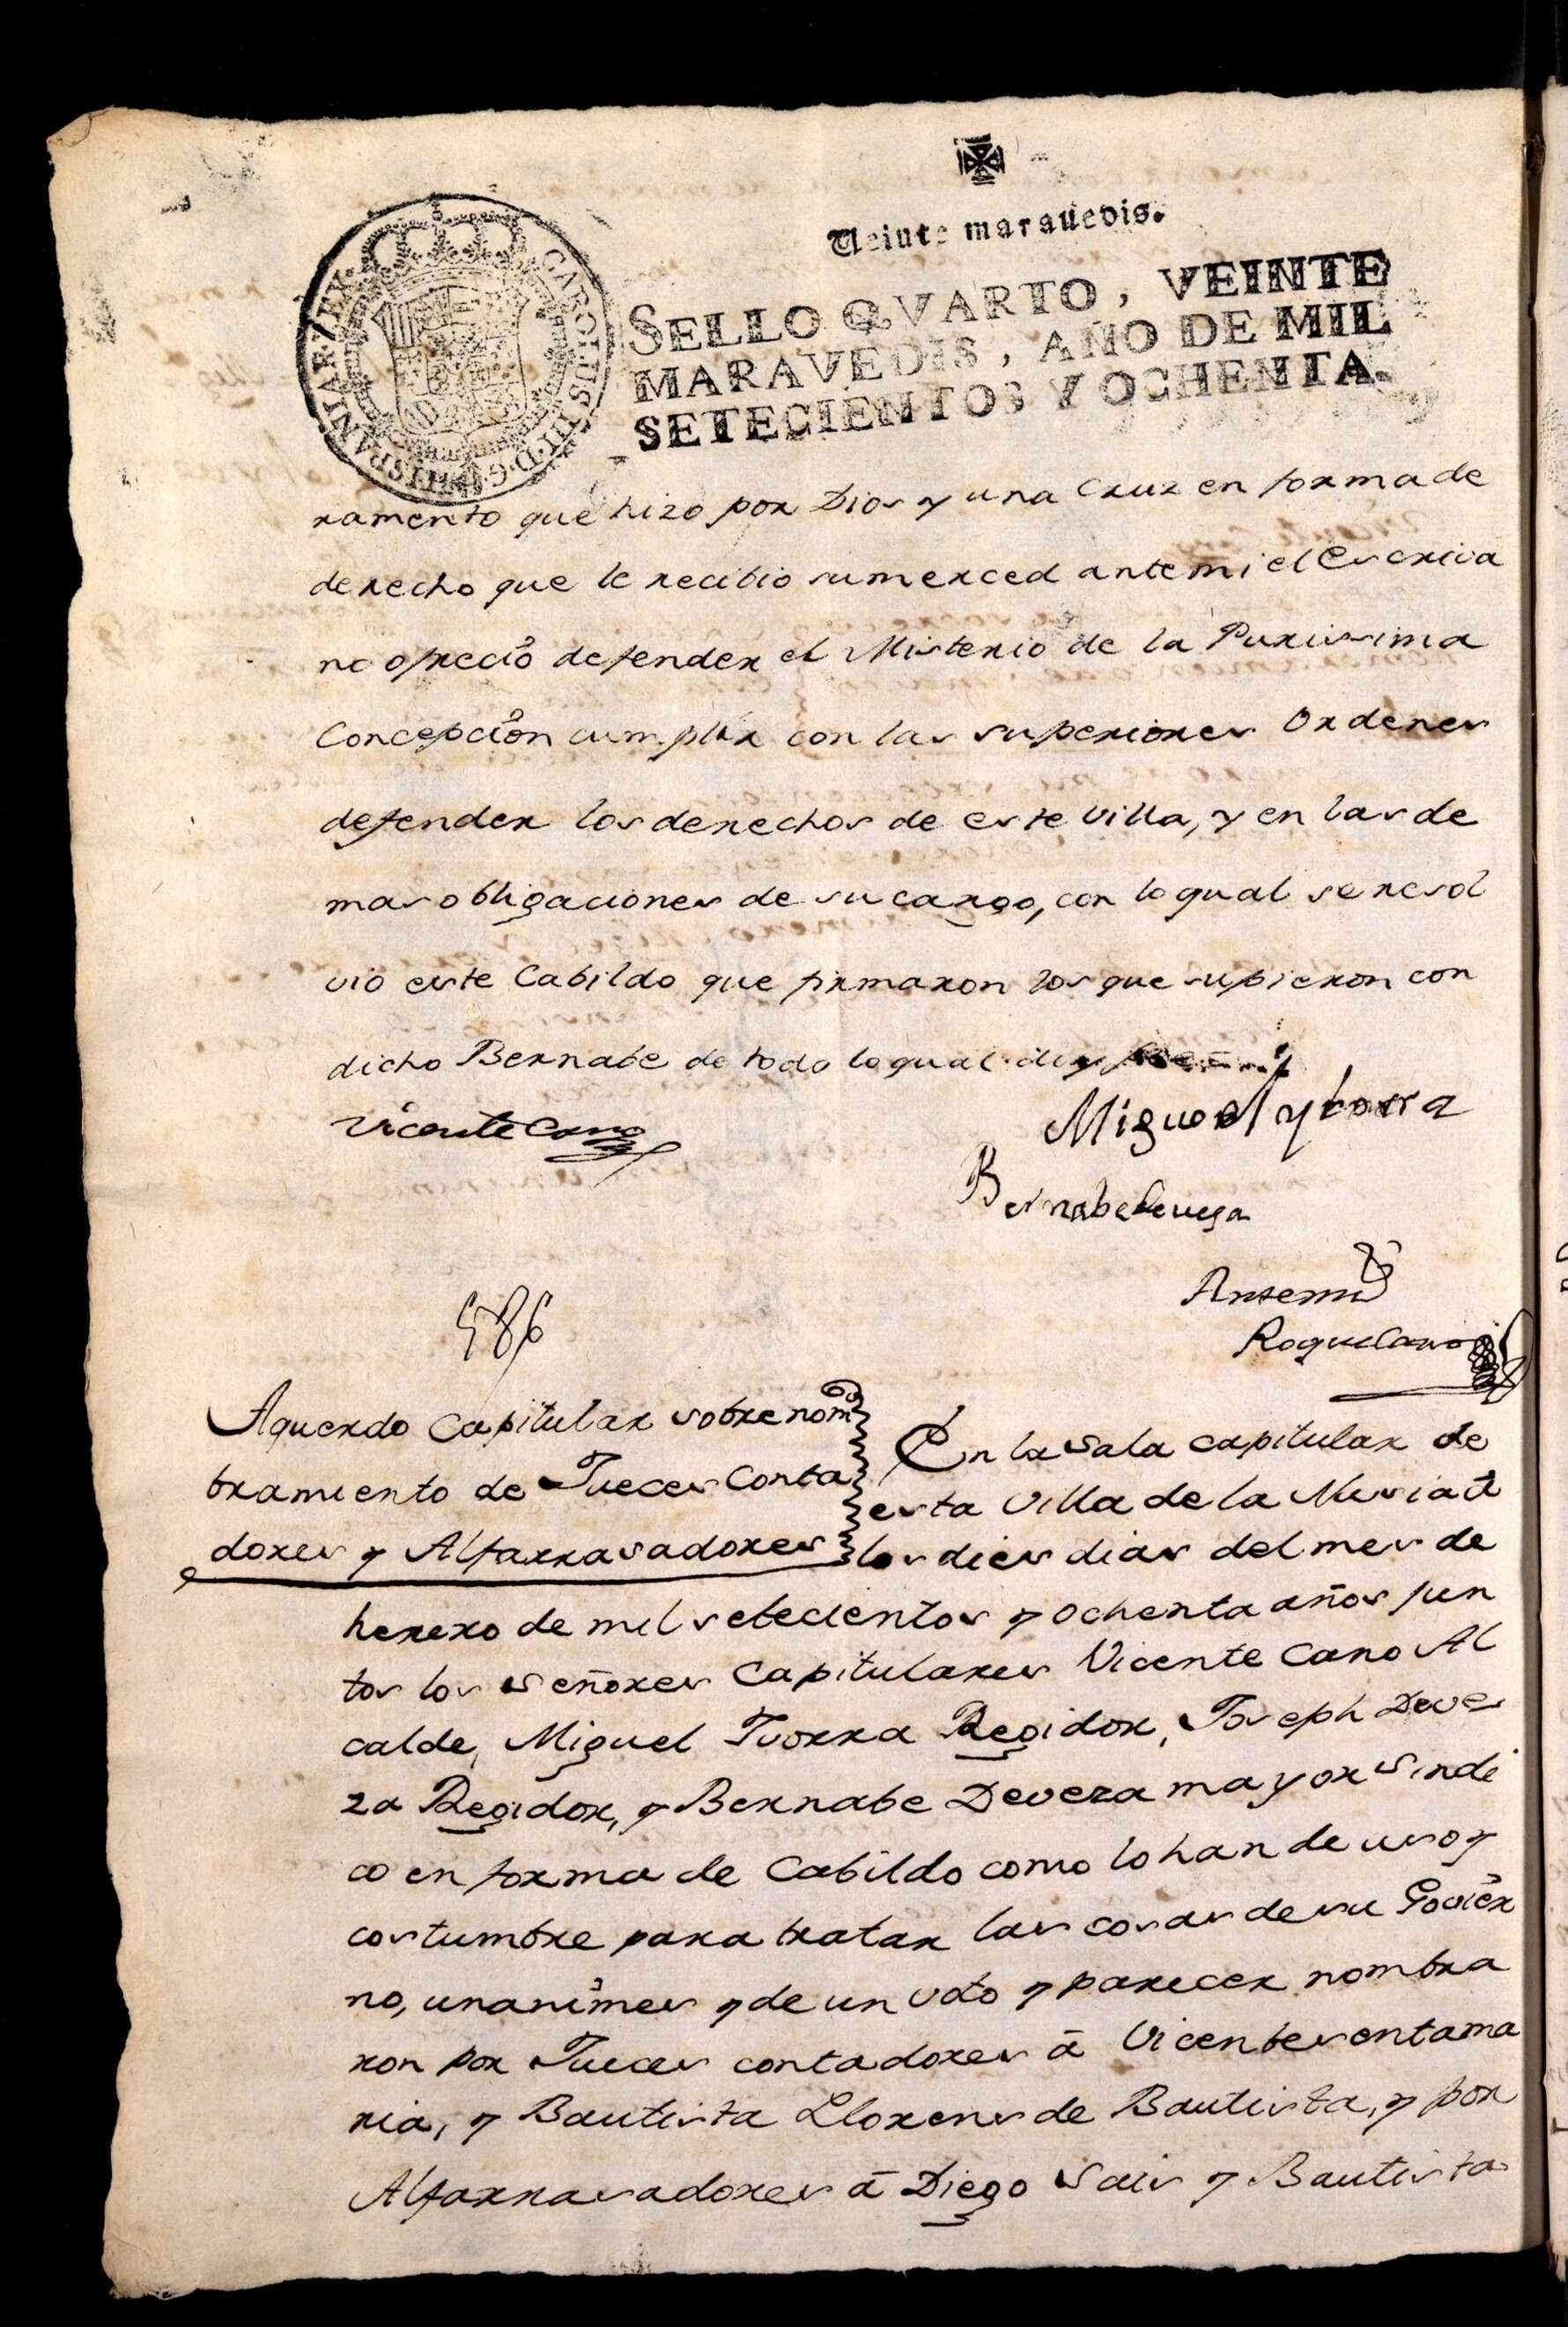 Veinte marauedis.
SELLO QVARTO, VEINTE
MARAVEDIS, AÑO DE MIL
SETECIENTOS Y OCHENTA.
CAROLUS III D. G. HISPANIAR REX
ramento que hizo por Dios y una Cruz en forma de
derecho que le recibio sumerced antemi el Escriva
no ofrecio defender el Misterio de la Purissima
Concepcion cumplir con las superiores Ordenes
defender los derechos de este Villa, y en las de
mas obligaciones de su cargo, con lo qual se resol
vio este Cabildo que firmaron los que supieron con
dicho Bernabe de todo lo qual doy fee
Vicente Cano
Miguel Yvorra
Bernabe Devesa
Antemi
Roque Cano
586
Aquerdo Capitular sobre nom
bramiento de Jueces Conta
dores y Alfarrasadores
En la Sala capitular de
esta Villa de la Nusia â
los dies dias del mes de
henero de mil setecientos y ochenta años jun
tos los Señores Capitulares Vicente Cano Al
calde, Miguel Yvorra Regidor, Joseph Deve
za Regidor, y Bernabe Deveza mayor Sindi
co en forma de Cabildo como lo han de uso y
costumbre para tratar las cosas de su Govier
no, unanimes y de un voto y parecer nombra
ron por Jueces contadores â Vicente Santama
ria, y Bautista Llorens de Bautista, y por
Alfarrasadores â Diego Sais y Bautista